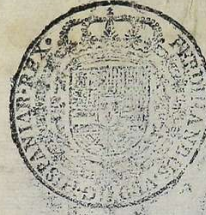 FERDINANDVS D.G. HISPANIAR.REX.